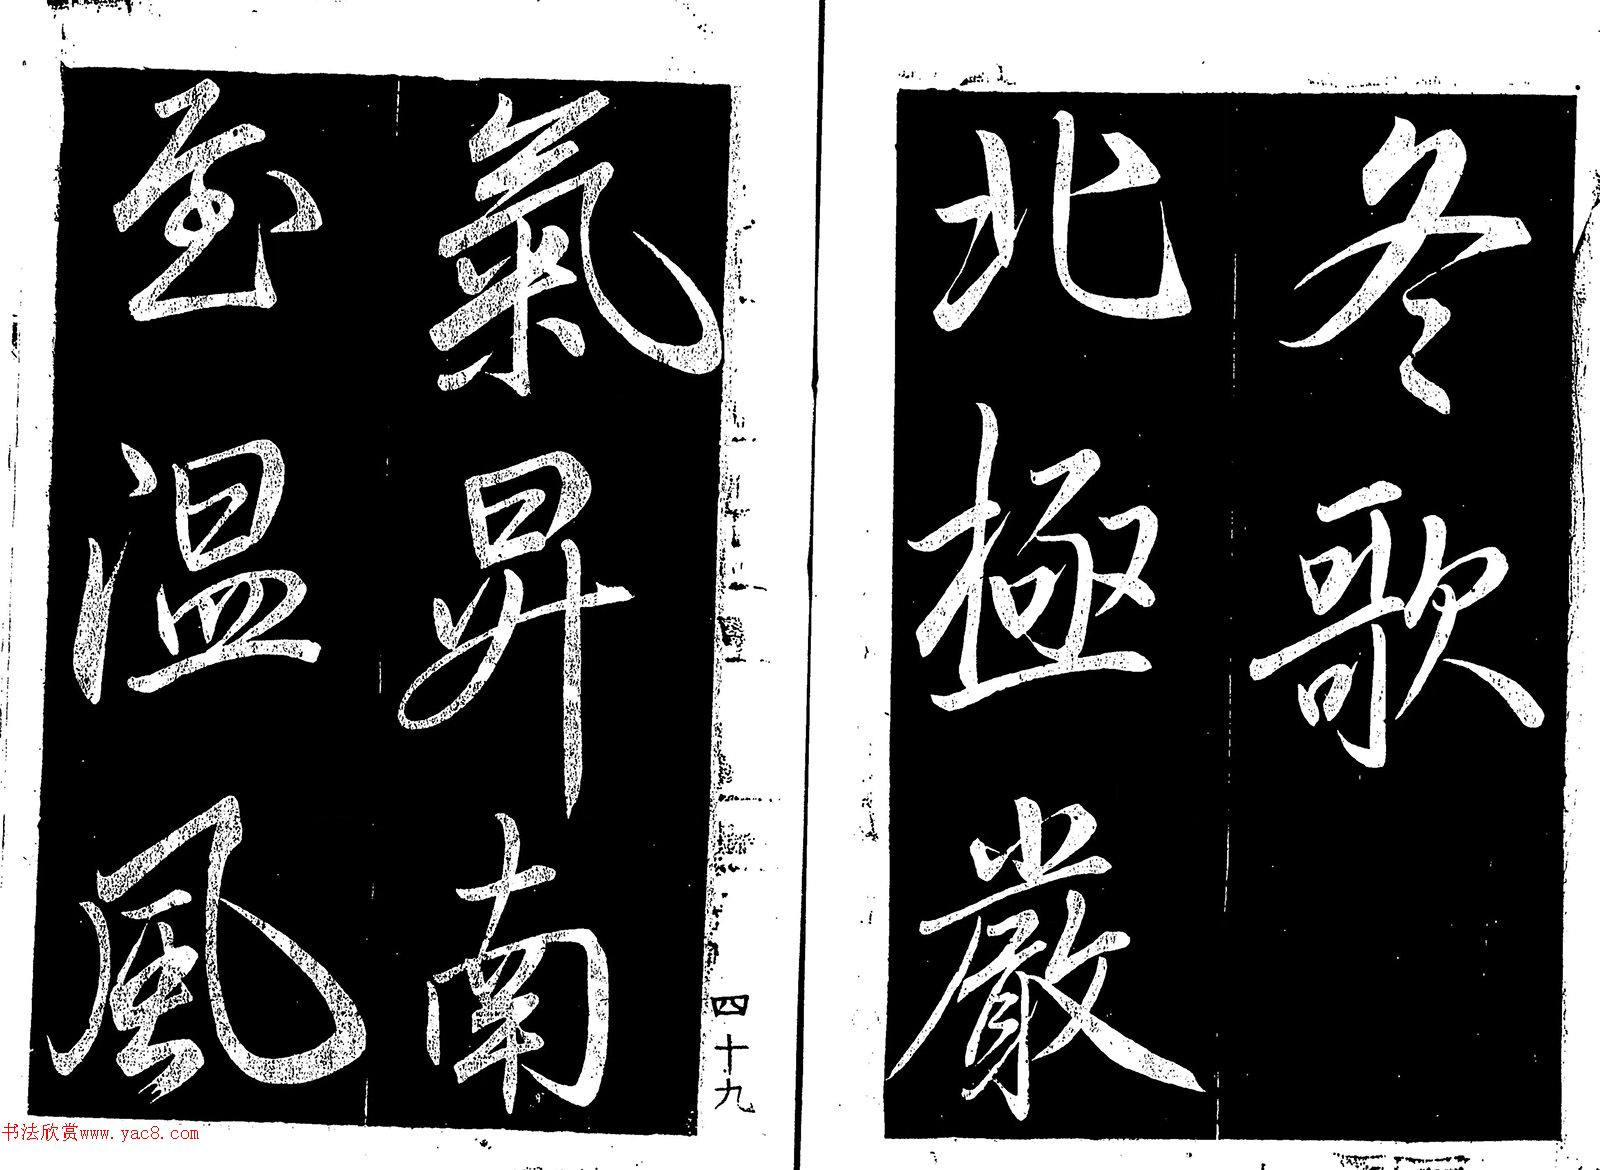 冬歌
北極嚴
氣昇南
至溫風
四十九
书法欣赏www.yac8.com